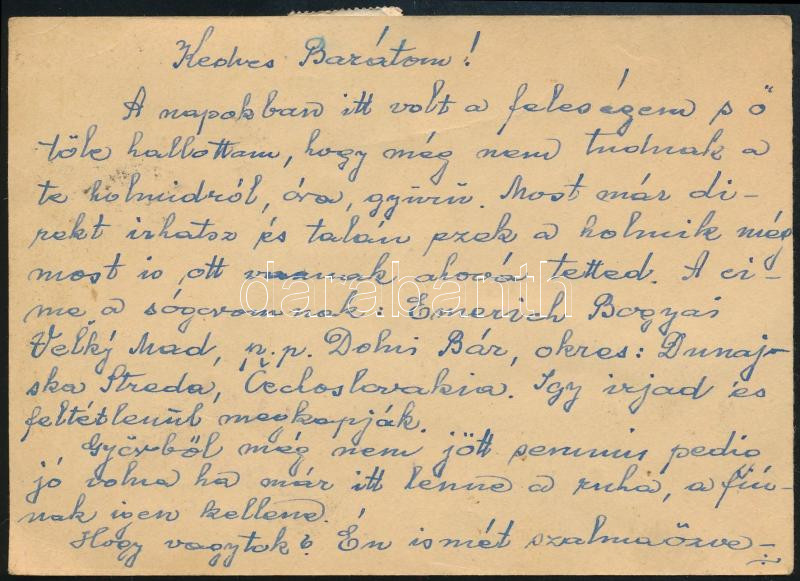 Kedves Barátom!
A napokban itt volt a feleségem s ő
tőle hallottam, hogy még nem tudnak a
te holmidról, óra, gyűrű. Most már di-
rekt irhatsz és talán ezek a holmik még
most is ott vannak ahová tetted. A ci-
me a sógoromnak: Emerich Bogyai
Velký Mad, p.p. Dolni Bár, okres: Dunaj-
ska Streda, Čechoslovakia. Igy irjad és
feltétlenül megkapják.
Győrből még nem jött semmi pedig
jó volna ha már itt lenne a ruha, a fiú-
nak igen kellene.
Hogy vagytok? Én ismét szalmaözve-
darabanth